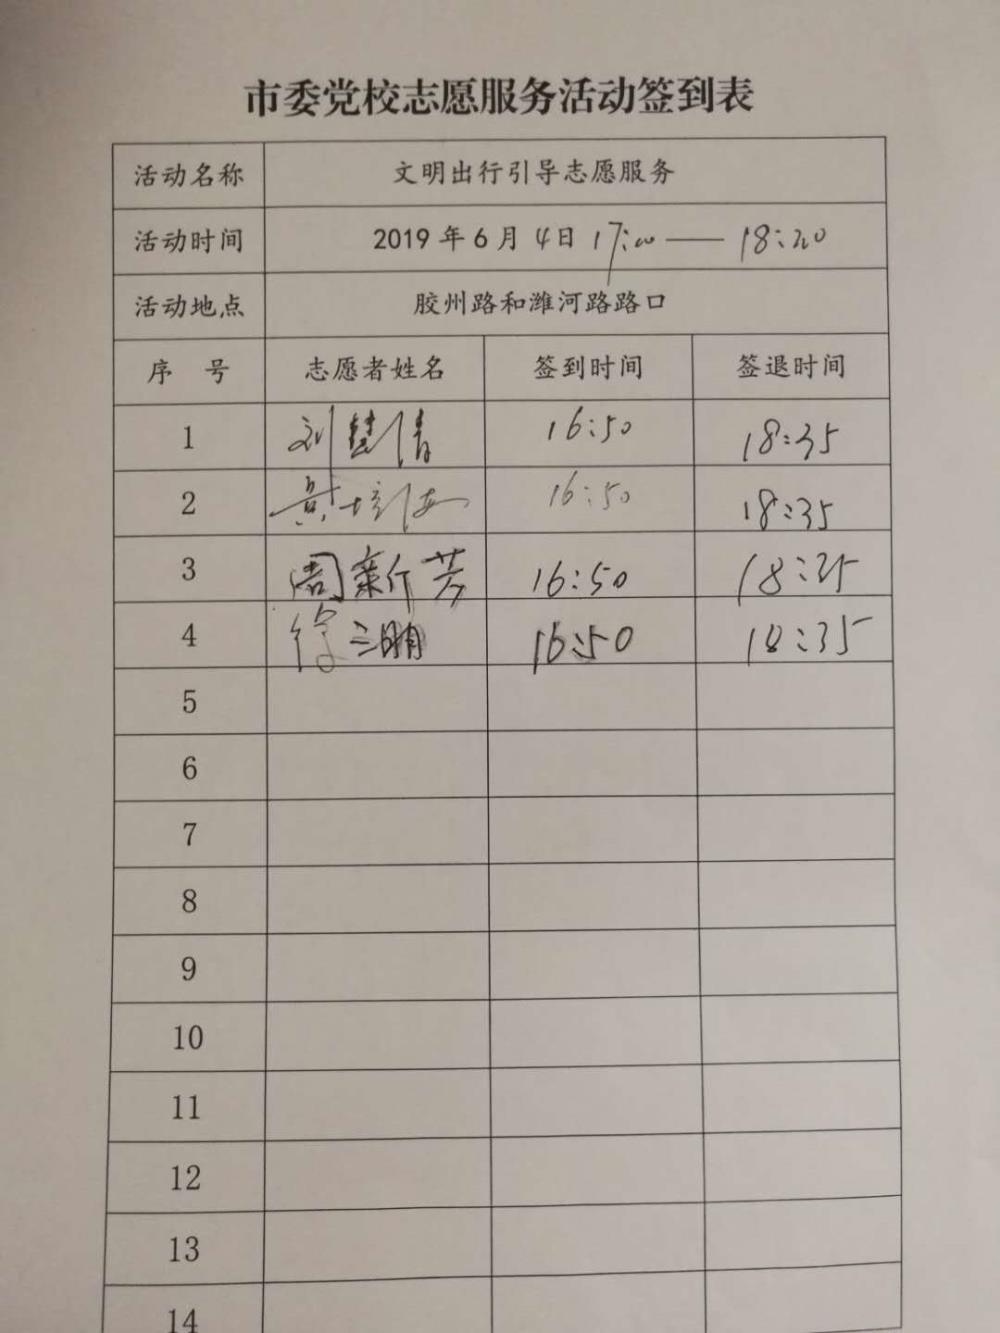 市委党校志愿服务活动签到表
活动名称 文明出行引导志愿服务
活动时间 2019 年 6 月 4 日 17:00 —— 18:20
活动地点 胶州路和潍河路路口
序 号 志愿者姓名 签到时间 签退时间
1 刘慧清 16:50 18:35
2 黄培海 16:50 18:35
3 周新芳 16:50 18:35
4 徐三朋 16:50 18:35
5
6
7
8
9
10
11
12
13
14